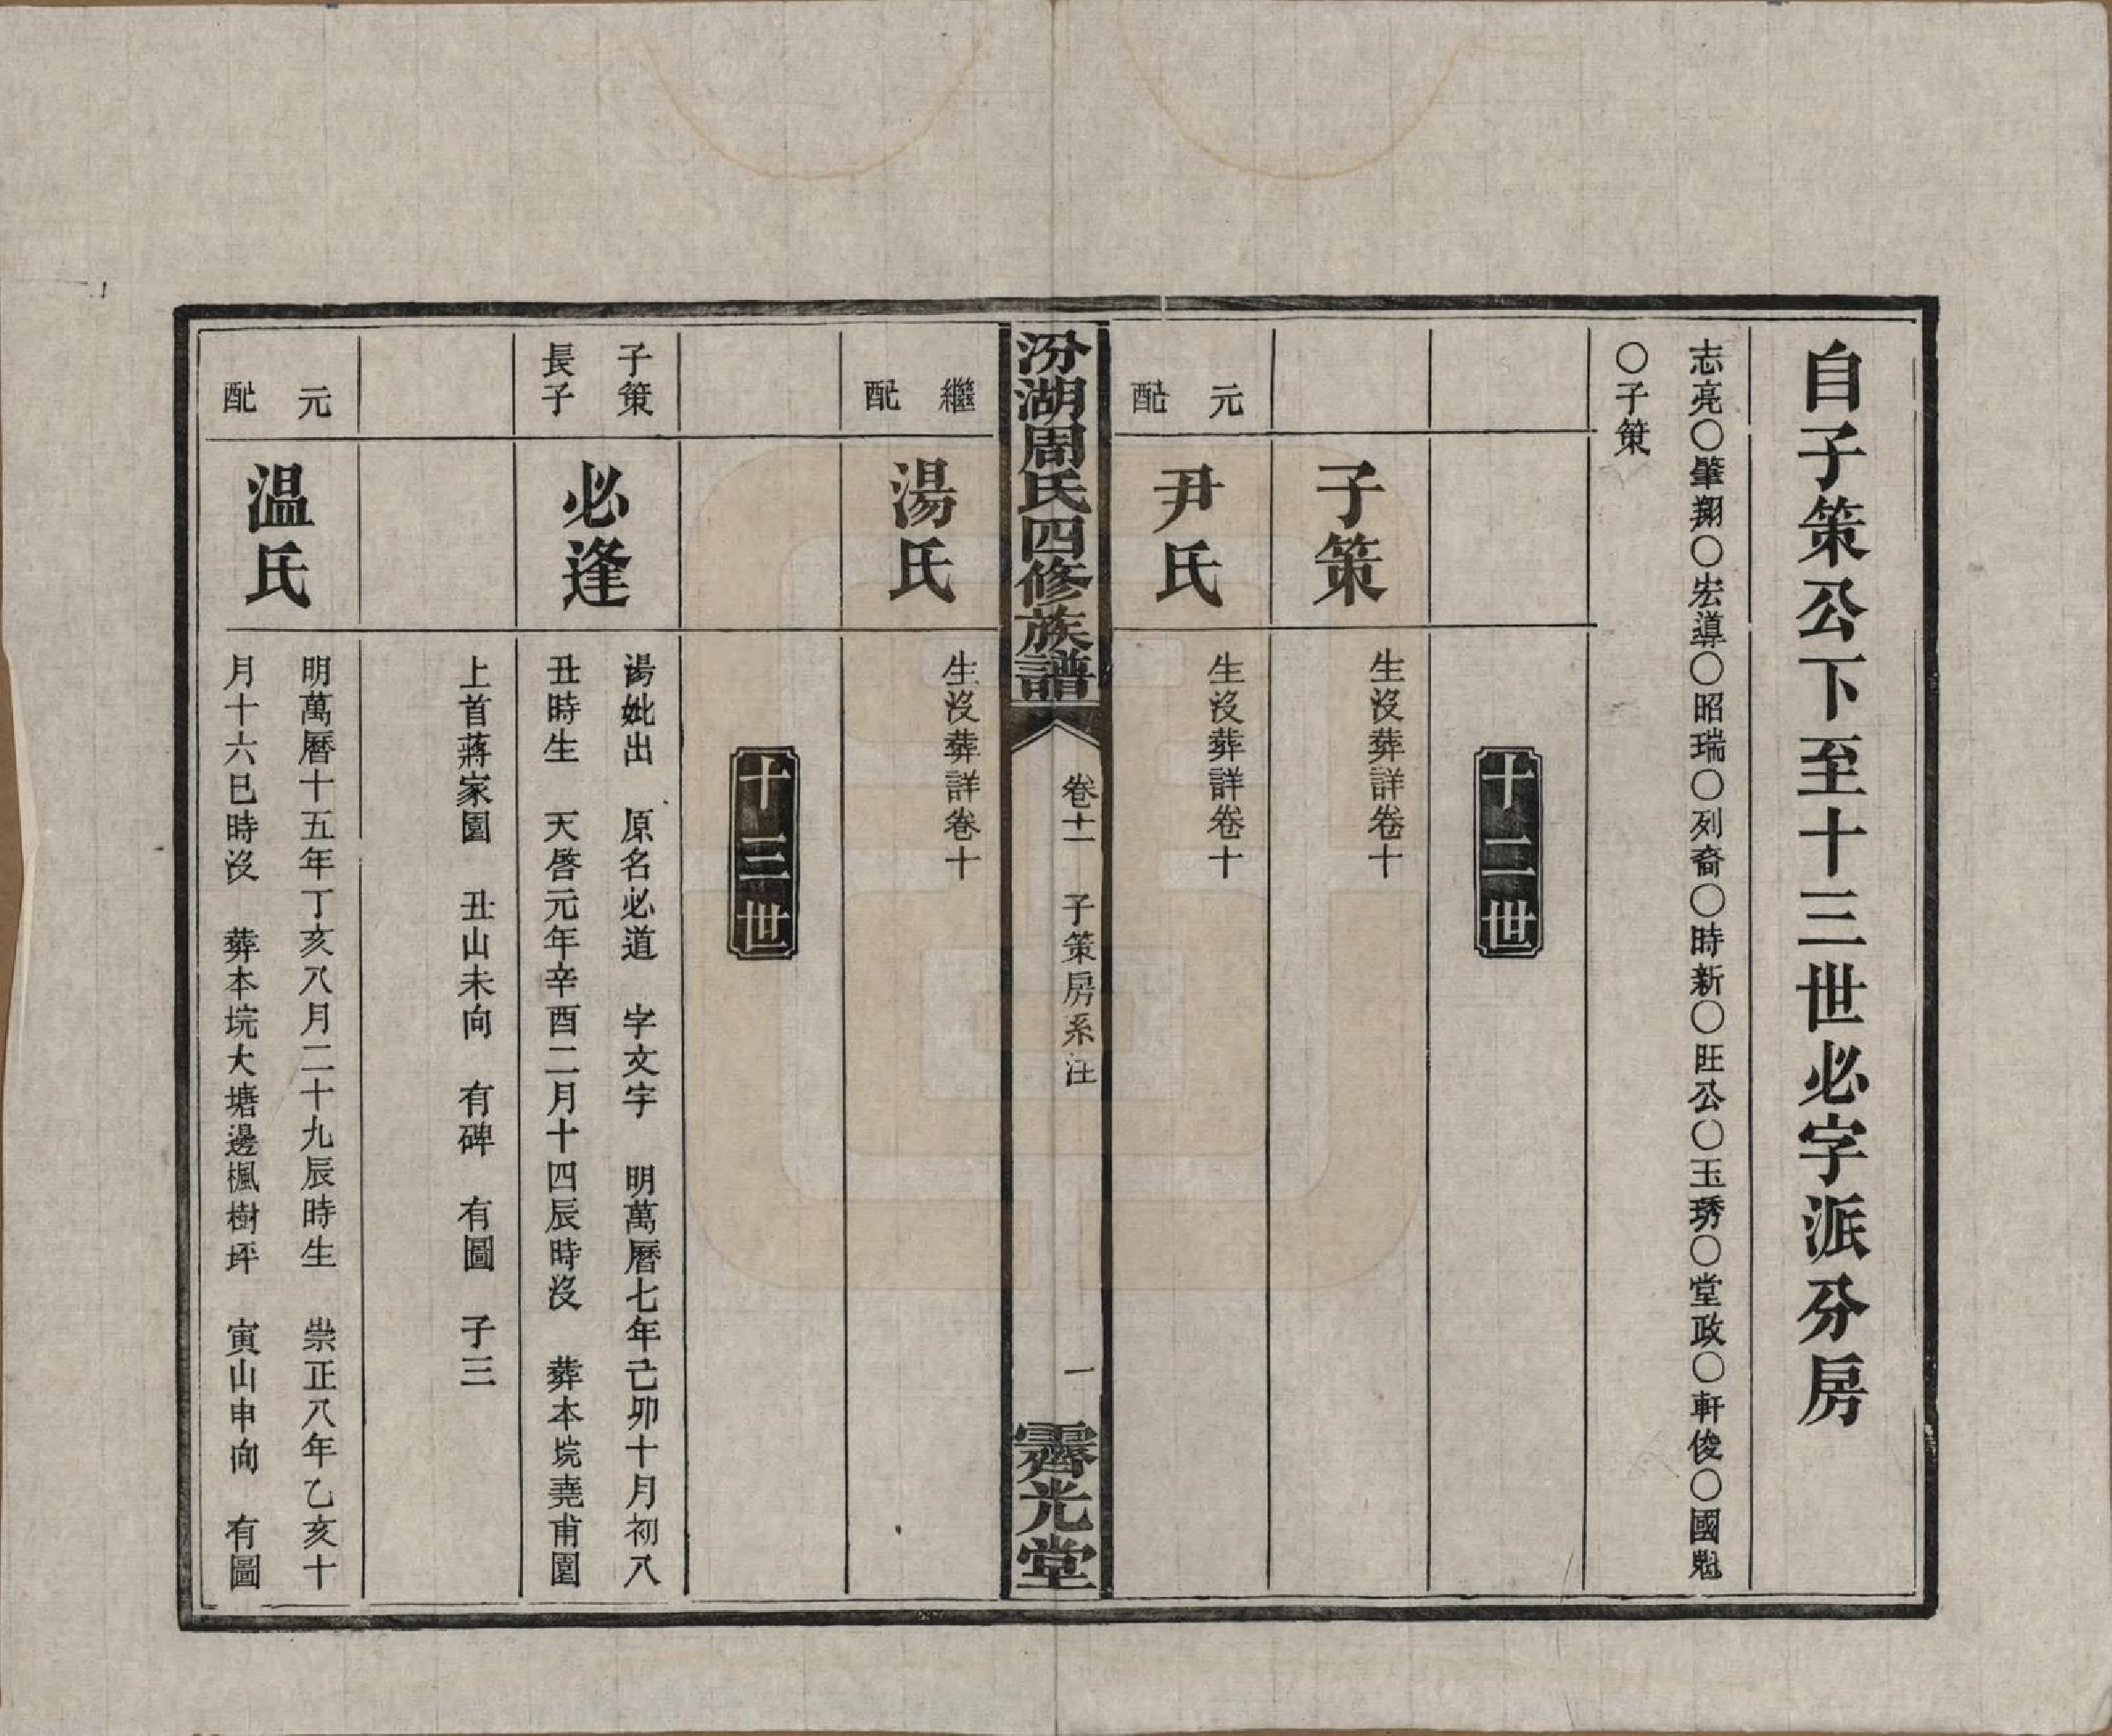 自子策公下至十三世必字派分房
志亮〇肇翔〇宏導〇昭瑞〇列裔〇時新〇旺公〇玉琇〇堂政〇軒俊〇國魁
〇子策
十二世
子策
生沒葬詳卷十
元配
尹氏
生沒葬詳卷十
汾湖周氏四修族譜
卷十一 子策房系注
一
霽光堂
繼配
湯氏
生沒葬詳卷十
十三世
子策
長子
必逢
湯妣出 原名必道 字文宇 明萬曆七年己卯十月初八
丑時生 天啓元年辛酉二月十四辰時沒 葬本垸堯甫園
上首蔣家園 丑山未向 有碑 有圖 子三
元配
温氏
明萬曆十五年丁亥八月二十九辰時生 崇正八年乙亥十
月十六巳時沒 葬本垸大塘邊楓樹坪 寅山申向 有圖